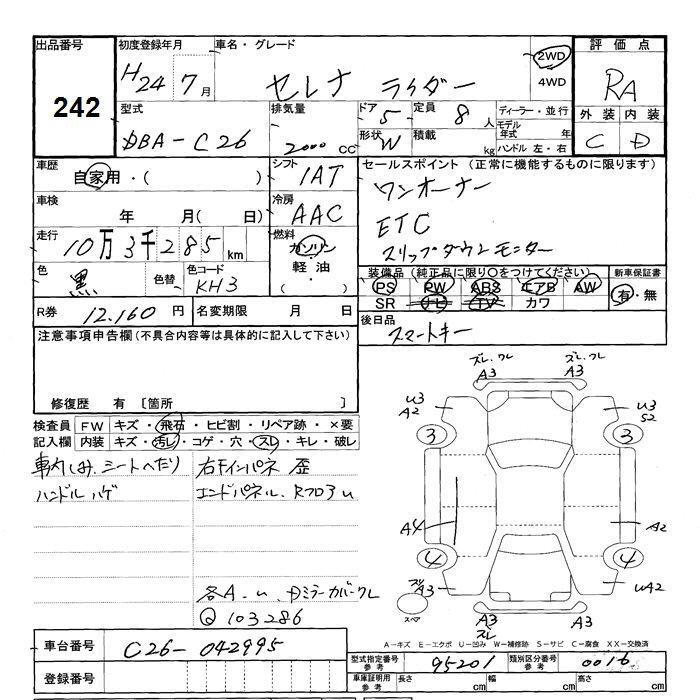 出品番号 初度登録年月 車名・グレード 評価点
242 H24 7月 セレナ ライダー 2WD 4WD RA
型式 排気量 ドア 5 定員 8人 ディーラー・並行 外装 内装
DBA-C26 2000cc 形状 W 積載 kg モデル年式 年 ハンドル 左・右 C D
車歴 自家用・( ) シフト IAT セールスポイント(正常に機能するものに限ります)
車検 年 月(日) 冷房 AAC ワンオーナー
ETC
走行 10万3千285km 燃料 ガソリン・軽油・ スリップダウンモニター
色 黒 色替 色コード KH3 装備品(純正品に限り○をつけてください) 新車保証書
PS PW ABS エアB AW 有・無
SR ナビ TV カワ
R券 12.160円 名変期限 月 日 後日品 スマートキー
注意事項申告欄(不具合内容等は具体的に記入して下さい)
修復歴 有 〔箇所
検査員 FW キズ・飛石・ヒビ割・リペア跡・×要
記入欄 内装 キズ・汚レ・コゲ・穴・スレ・キレ・破レ
車内しみ、シートへたり 右下インパネ 歪
ハンドルハゲ エンドパネル、Rフロアu
各A-u、Dミラーカバークレ
Q 103286
スレ、クレ A3 スレ、クレ A3
U3 A2 U3 S2
3 3
A4 A2
4 4
スリ A3 UA2
スペア A3 スレ A3
A-キズ E-エクボ U-凹み W-補修跡 S-サビ C-腐食 XX-交換済
車台番号 C26-042995
型式指定番号 参考 95201 類別区分番号 参考 0016
登録番号 車庫証明用 参考 長さ cm 幅 cm 高さ cm